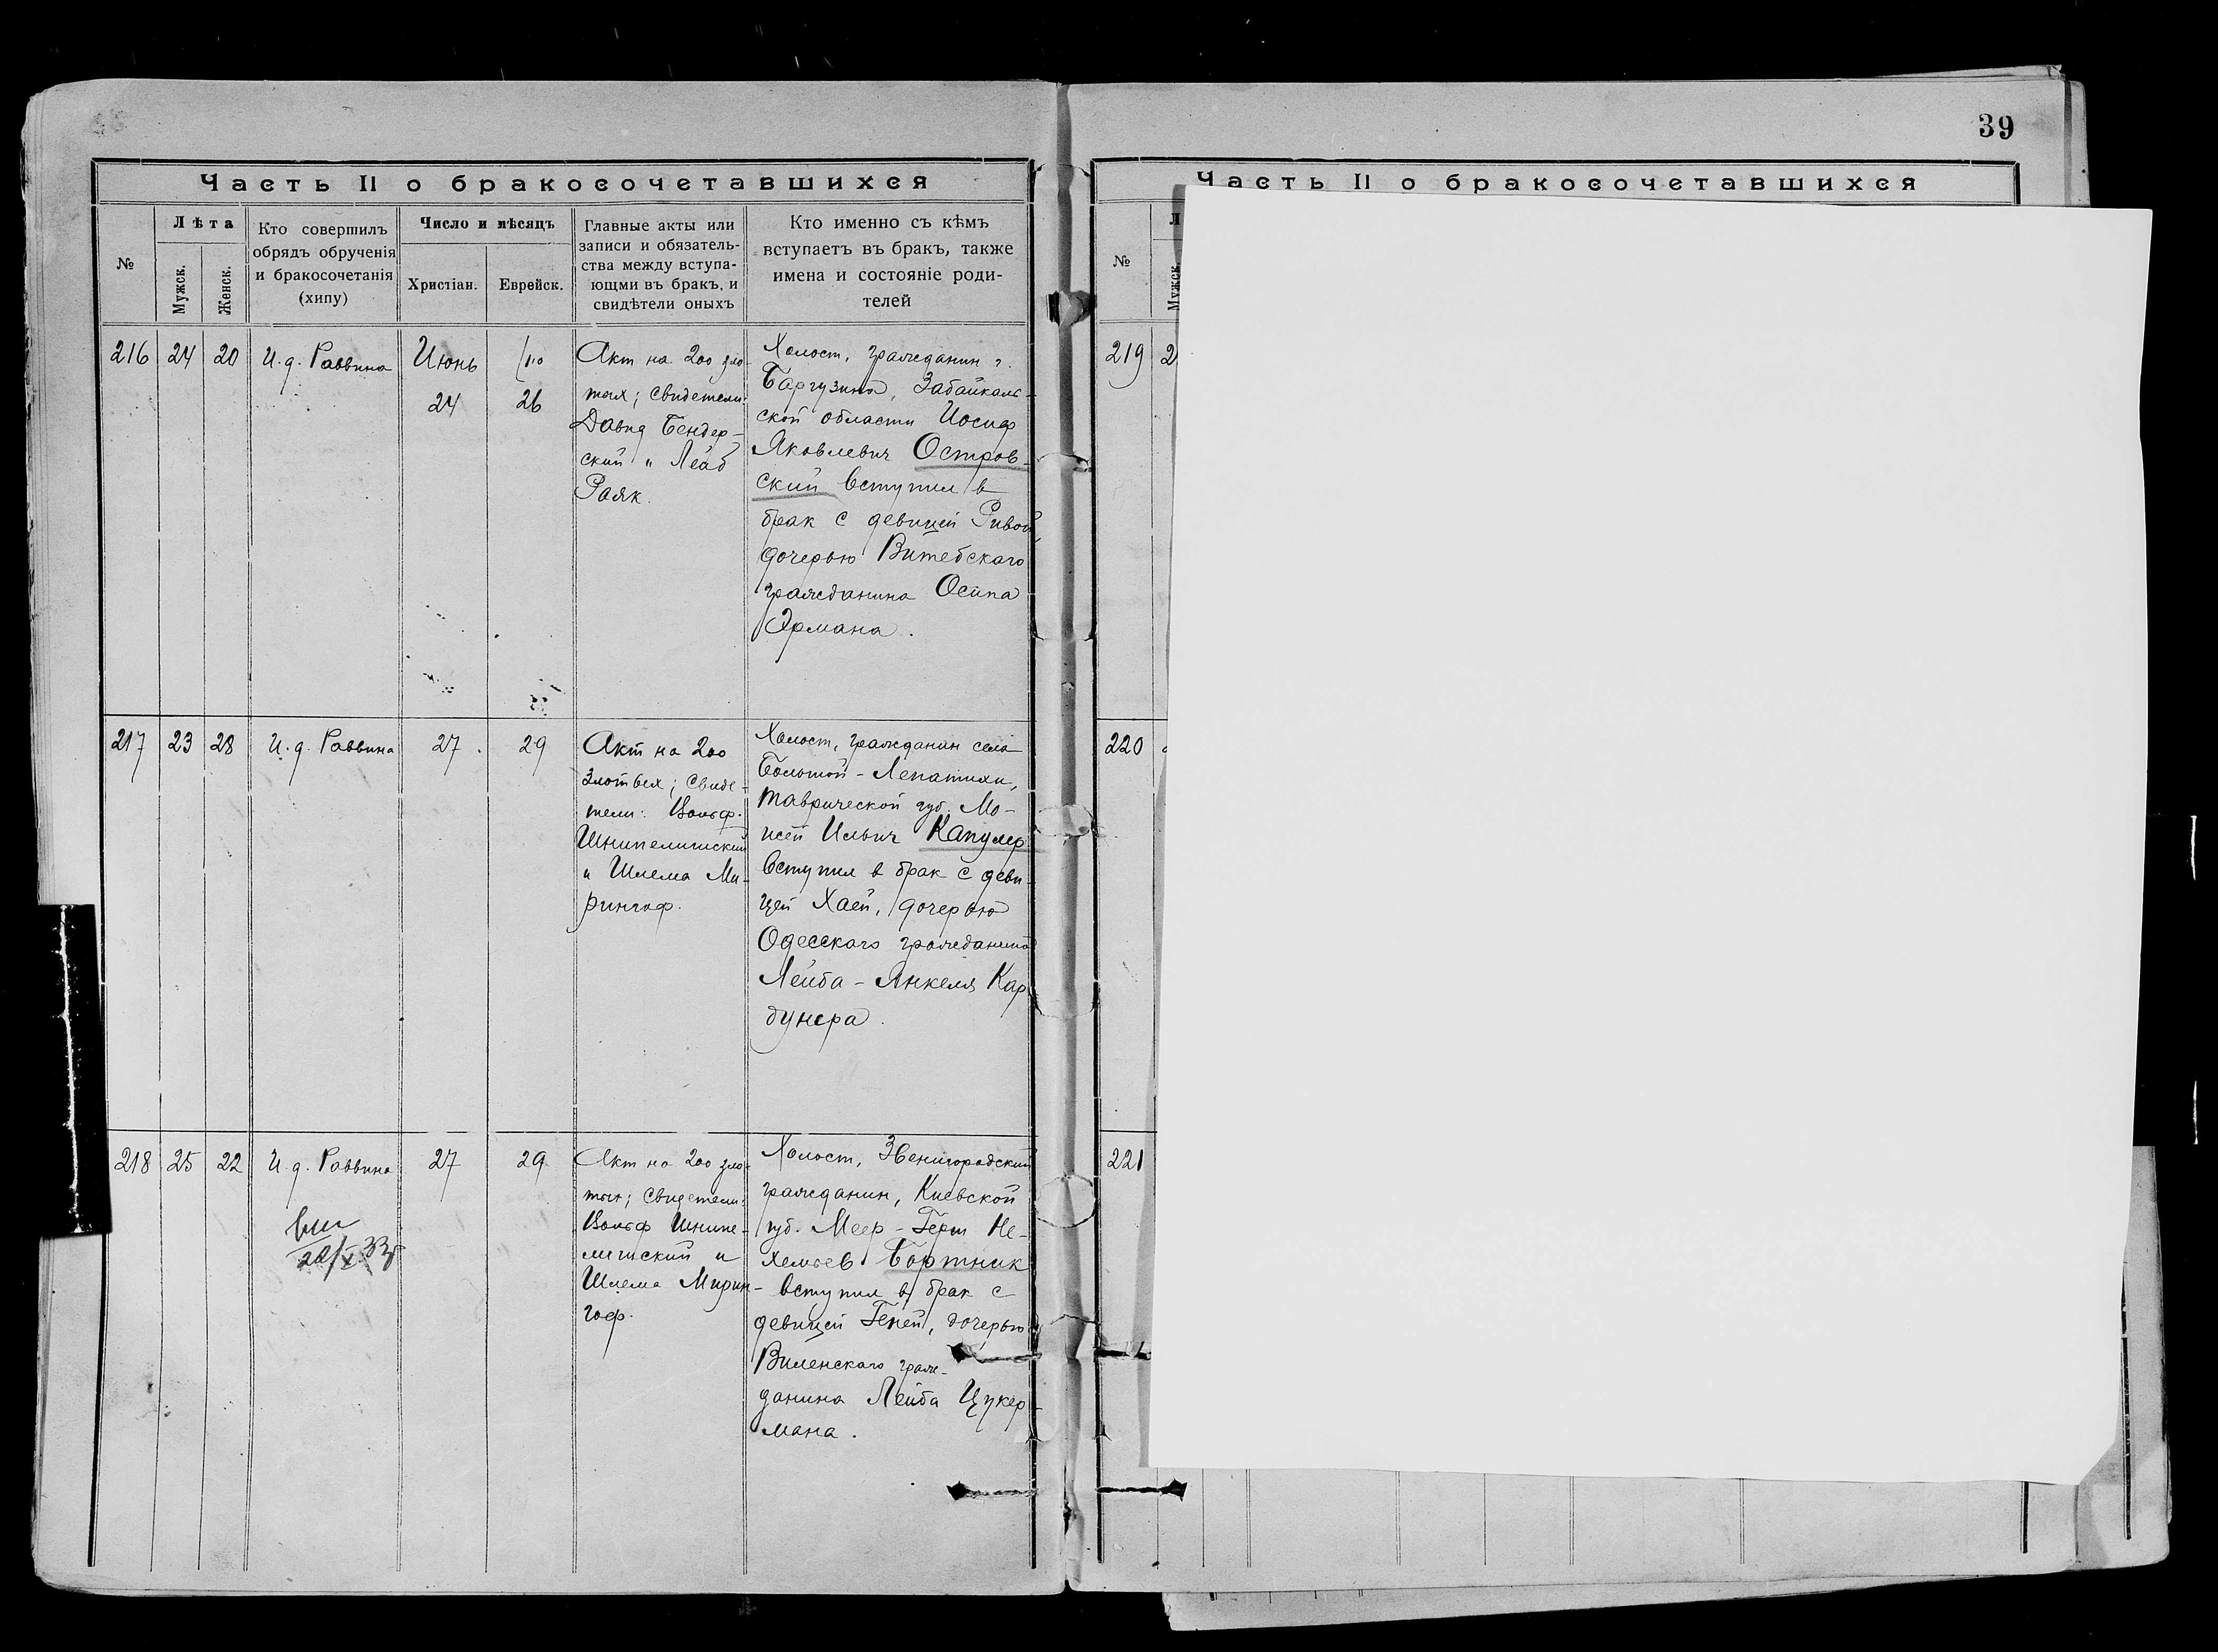 39
Часть II о бракосочетавшихся
№
Лѣта
Мужск.
Женск.
Кто совершилъ
обрядъ обрученія
и бракосочетанія
(хипу)
Число и мѣсяцъ
Христіан.
Еврейск.
Главные акты или
записи и обязатель-
ства между вступа-
ющми въ бракъ, и
свидѣтели оныхъ
Кто именно съ кѣмъ
вступаетъ въ бракъ, также
имена и состояніе роди-
телей
216
24
20
И. д. Раввина
Июнь
24
26
Акт на 200 зло-
тых; свидетели:
Давид Бендер-
ский и Лейб
Раяк.
Холост, гражданин г.
Баргузина, Забайкаль-
ской области Иосиф
Яковлевич Остров-
ский вступил в
брак с девицей Ривой,
дочерью Витебского
гражданина Осипа
Эрмана.
217
23
28
И. д. Раввина
27.
29
Акт на 200
злотых; свиде-
тели: Вольф
Шнипелишский
и Шлема Ми-
рингоф.
Холост, гражданин села
Большой-Лепатихи,
Таврической губ. Мо-
исей Ильич Капулер
вступил в брак с деви-
цей Хаей, дочерью
Одесского гражданина
Лейба-Янкеля Кар
дунера.
218
25
22
И. д. Раввина
27
29
Акт на 200 зло-
тых; свидетели:
Вольф Шнипе-
лишский и
Шлема Мирин-
гоф.
Холост, Звенигородский
гражданин, Киевской
губ. Меер-Герш Не-
хемьев Бортник
вступил в брак с
девицей Геней, дочерью
Виленского граж-
данина Лейба Цукер-
мана.
Часть II о бракосочетавшихся
№
Мужск.
219
2
220
221